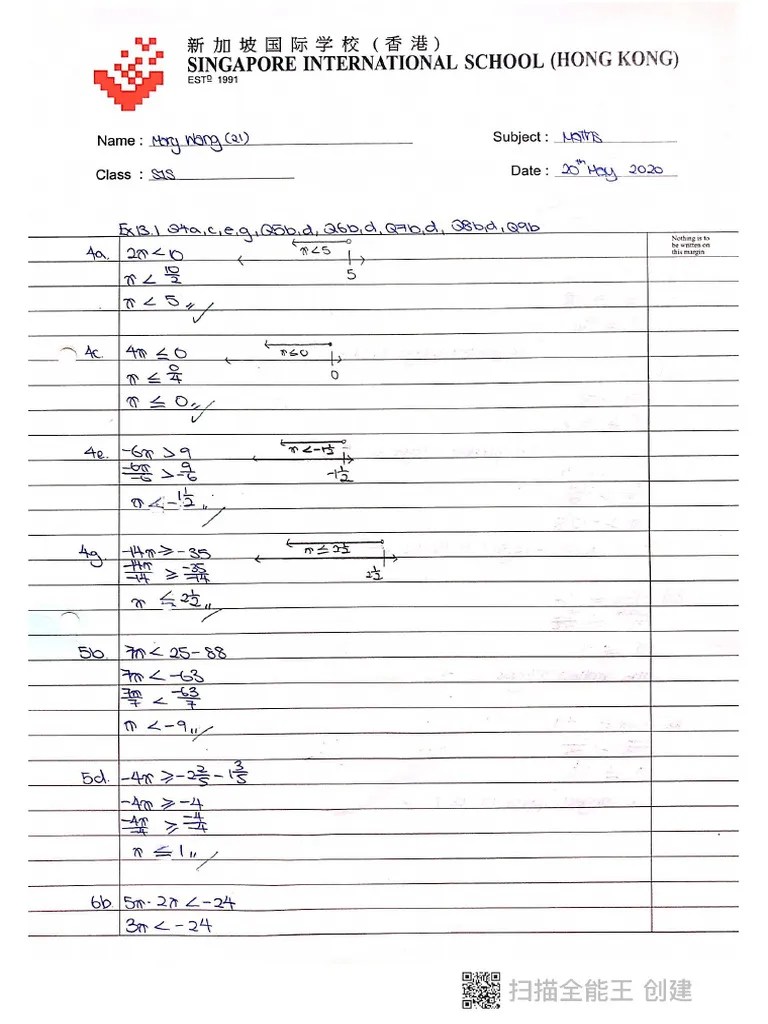 新加坡国际学校(香港)
SINGAPORE INTERNATIONAL SCHOOL (HONG KONG)
ESTD 1991
Name : Mary Wang (21)
Subject : Maths
Class : S1S
Date : 20th May 2020
Ex13.1 Q4a,c,e,g, Q5b,d, Q6b,d, Q7b,d, Q8b,d, Q9b
Nothing is to
be written on
this margin
4a. 2x < 10
x < 5
5
x < 10/2
x < 5
4c. 4x ≤ 0
x ≤ 0
0
x ≤ 0/4
x ≤ 0
4e. -6x > 9
x < -1 1/2
-1 1/2
-6x/-6 > 9/-6
x < -1 1/2
4g. -14x ≥ -35
x ≤ 2 1/2
2 1/2
-14x/-14 ≥ -35/-14
x ≤ 2 1/2
5b. 7x < 25-88
7x < -63
7x/7 < -63/7
x < -9
5d. -4x ≥ -2 2/5 - 1 3/5
-4x ≥ -4
-4x/-4 ≥ -4/-4
x ≤ 1
6b. 5x - 2x < -24
3x < -24
扫描全能王 创建